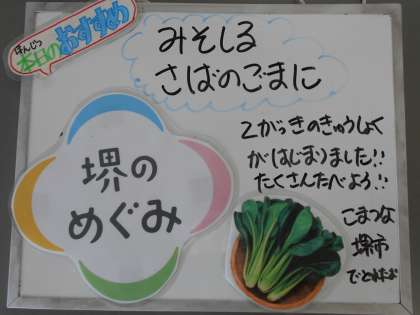 ほんじつ
本日のおすすめ
みそしる
さばのごまに
堺の
めぐみ
2がっきのきゅうしょく
がはじまりました!!
たくさんたべよう!!
こまつな
堺市
でとれたよ